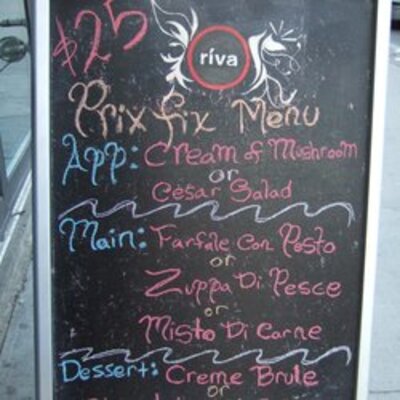 $25
ríva
Prix fix Menu
App: Cream of Mushroom
or
César Salad
Main: Farfale Con Pesto
or
Zuppa Di Pesce
or
Misto Di Carne
Dessert: Creme Brule
or